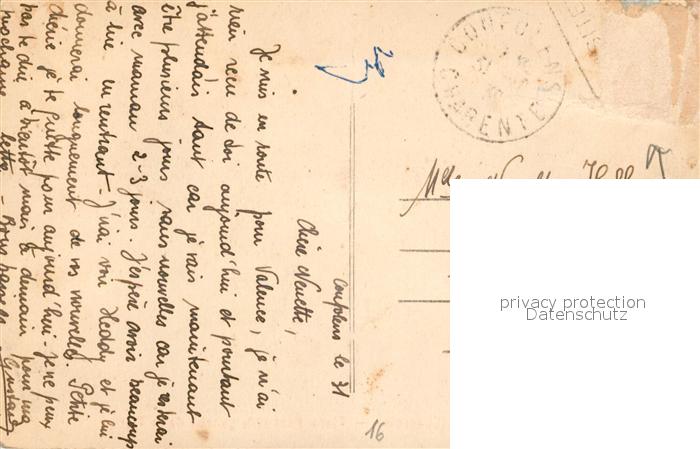 Confolens le 31
Chère Nenette,
Je suis en route pour Valence, je n'ai
rien reçu de toi aujourd'hui et pourtant
j'attendais tant car je vais maintenant
être plusieurs jours sans nouvelles car je resterai
avec maman 2-3 jours. J'espère avoir beaucoup
à lire en rentrant - J'irai voir Heddy et je lui
donnerai longuement de vos nouvelles. Petite
chérie je te quitte pour aujourd'hui. Je ne peux
pas te dire à bientôt mais à demain pour ma
prochaine lettre - Bons baisers
Gustave
CONFOLENS
CHARENTE
Melle
16
privacy protection
Datenschutz